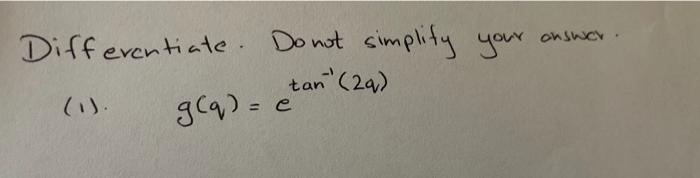 Differentiate. Do not simplify your answer.
(1). g(q) = e^{tan^{-1}(2q)}